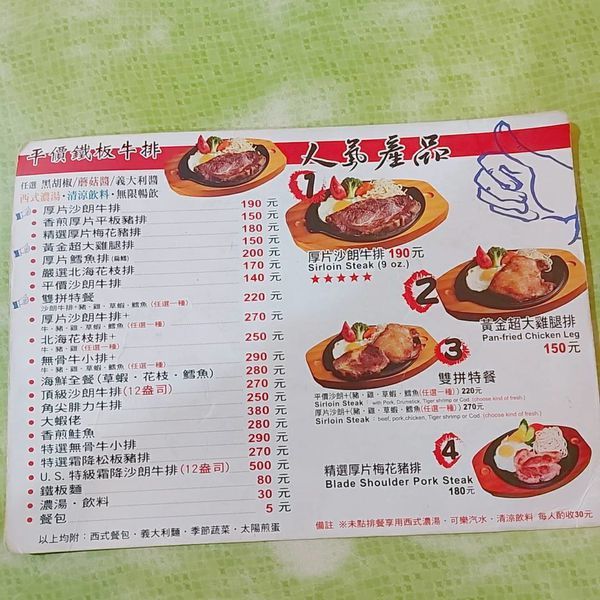 平價鐵板牛排
任選 黑胡椒/蘑菇醬/義大利醬
西式濃湯・清涼飲料・無限暢飲
厚片沙朗牛排 190 元
香煎厚片平板豬排 150 元
精選厚片梅花豬排 180 元
黃金超大雞腿排 150 元
厚片鱈魚排(扁鱈) 200 元
嚴選北海花枝排 170 元
平價沙朗牛排 140 元
雙拼特餐 220 元
沙朗牛排・豬、雞、草蝦、鱈魚(任選一種)
厚片沙朗牛排+ 270 元
牛・豬、雞、草蝦、鱈魚(任選一種)
北海花枝排+ 250 元
牛・豬、雞(任選一種)
無骨牛小排+ 290 元
牛・豬、雞、草蝦、鱈魚(任選一種)
海鮮全餐(草蝦・花枝・鱈魚) 280 元
頂級沙朗牛排(12盎司) 270 元
角尖腓力牛排 250 元
大蝦佬 380 元
香煎鮭魚 280 元
特選無骨牛小排 290 元
特選霜降松板豬排 270 元
U.S. 特級霜降沙朗牛排(12盎司) 500 元
鐵板麵 80 元
濃湯・飲料 30 元
餐包 5 元
以上均附：西式餐包・義大利麵・季節蔬菜・太陽煎蛋
人氣產品
1
厚片沙朗牛排 190元
Sirloin Steak (9 oz.)
★★★★★
2
黃金超大雞腿排
Pan-fried Chicken Leg
150元
3
雙拼特餐
平價沙朗+(豬、雞、草蝦、鱈魚(任選一種)) 220元
Sirloin Steak : with Pork, Drumstick, Tiger shrimp or Cod. (choose kind of fresh.)
厚片沙朗+(豬、雞、草蝦、鱈魚(任選一種)) 270元
Sirloin Steak : beef, pork,chicken, Tiger shrimp or Cod.(choose kind of fresh.)
4
精選厚片梅花豬排
Blade Shoulder Pork Steak
180元
備註 ※未點排餐享用西式濃湯・可樂汽水・清涼飲料 每人酌收30元